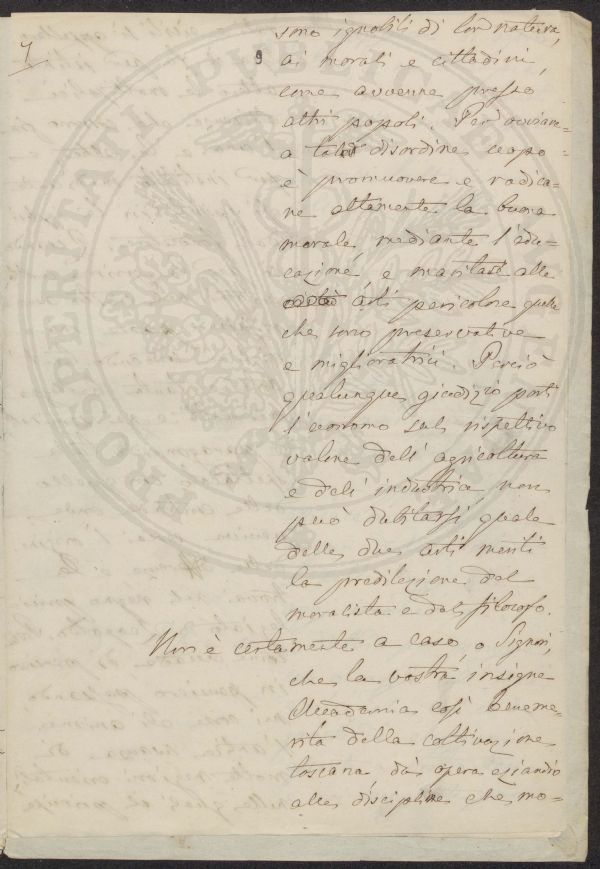 7
9
sono ignobili di lor natura,
ai morali e cittadini,
come avvenne presso
altri popoli. Però ovviare
a tale disordine uopo
è promuovere e radica-
re altamente la buona
morale mediante l'edu-
cazione e maritare alle
arti pericolose quelle
che sono preservative
e miglioratrici. Perciò
qualunque giudizio porti
l'economo sul rispettivo
valore dell' agricoltura
e dell' industria non
può dubitarsi quale
delle due arti meriti
la predilezione del
moralista e del filosofo.
Non è certamente a caso, o Signori,
che la vostra insigne
Accademia così beneme-
rita della coltivazione
toscana, dà opera eziandio
alle discipline che mo-
PROSPERITATI PUBLICAE